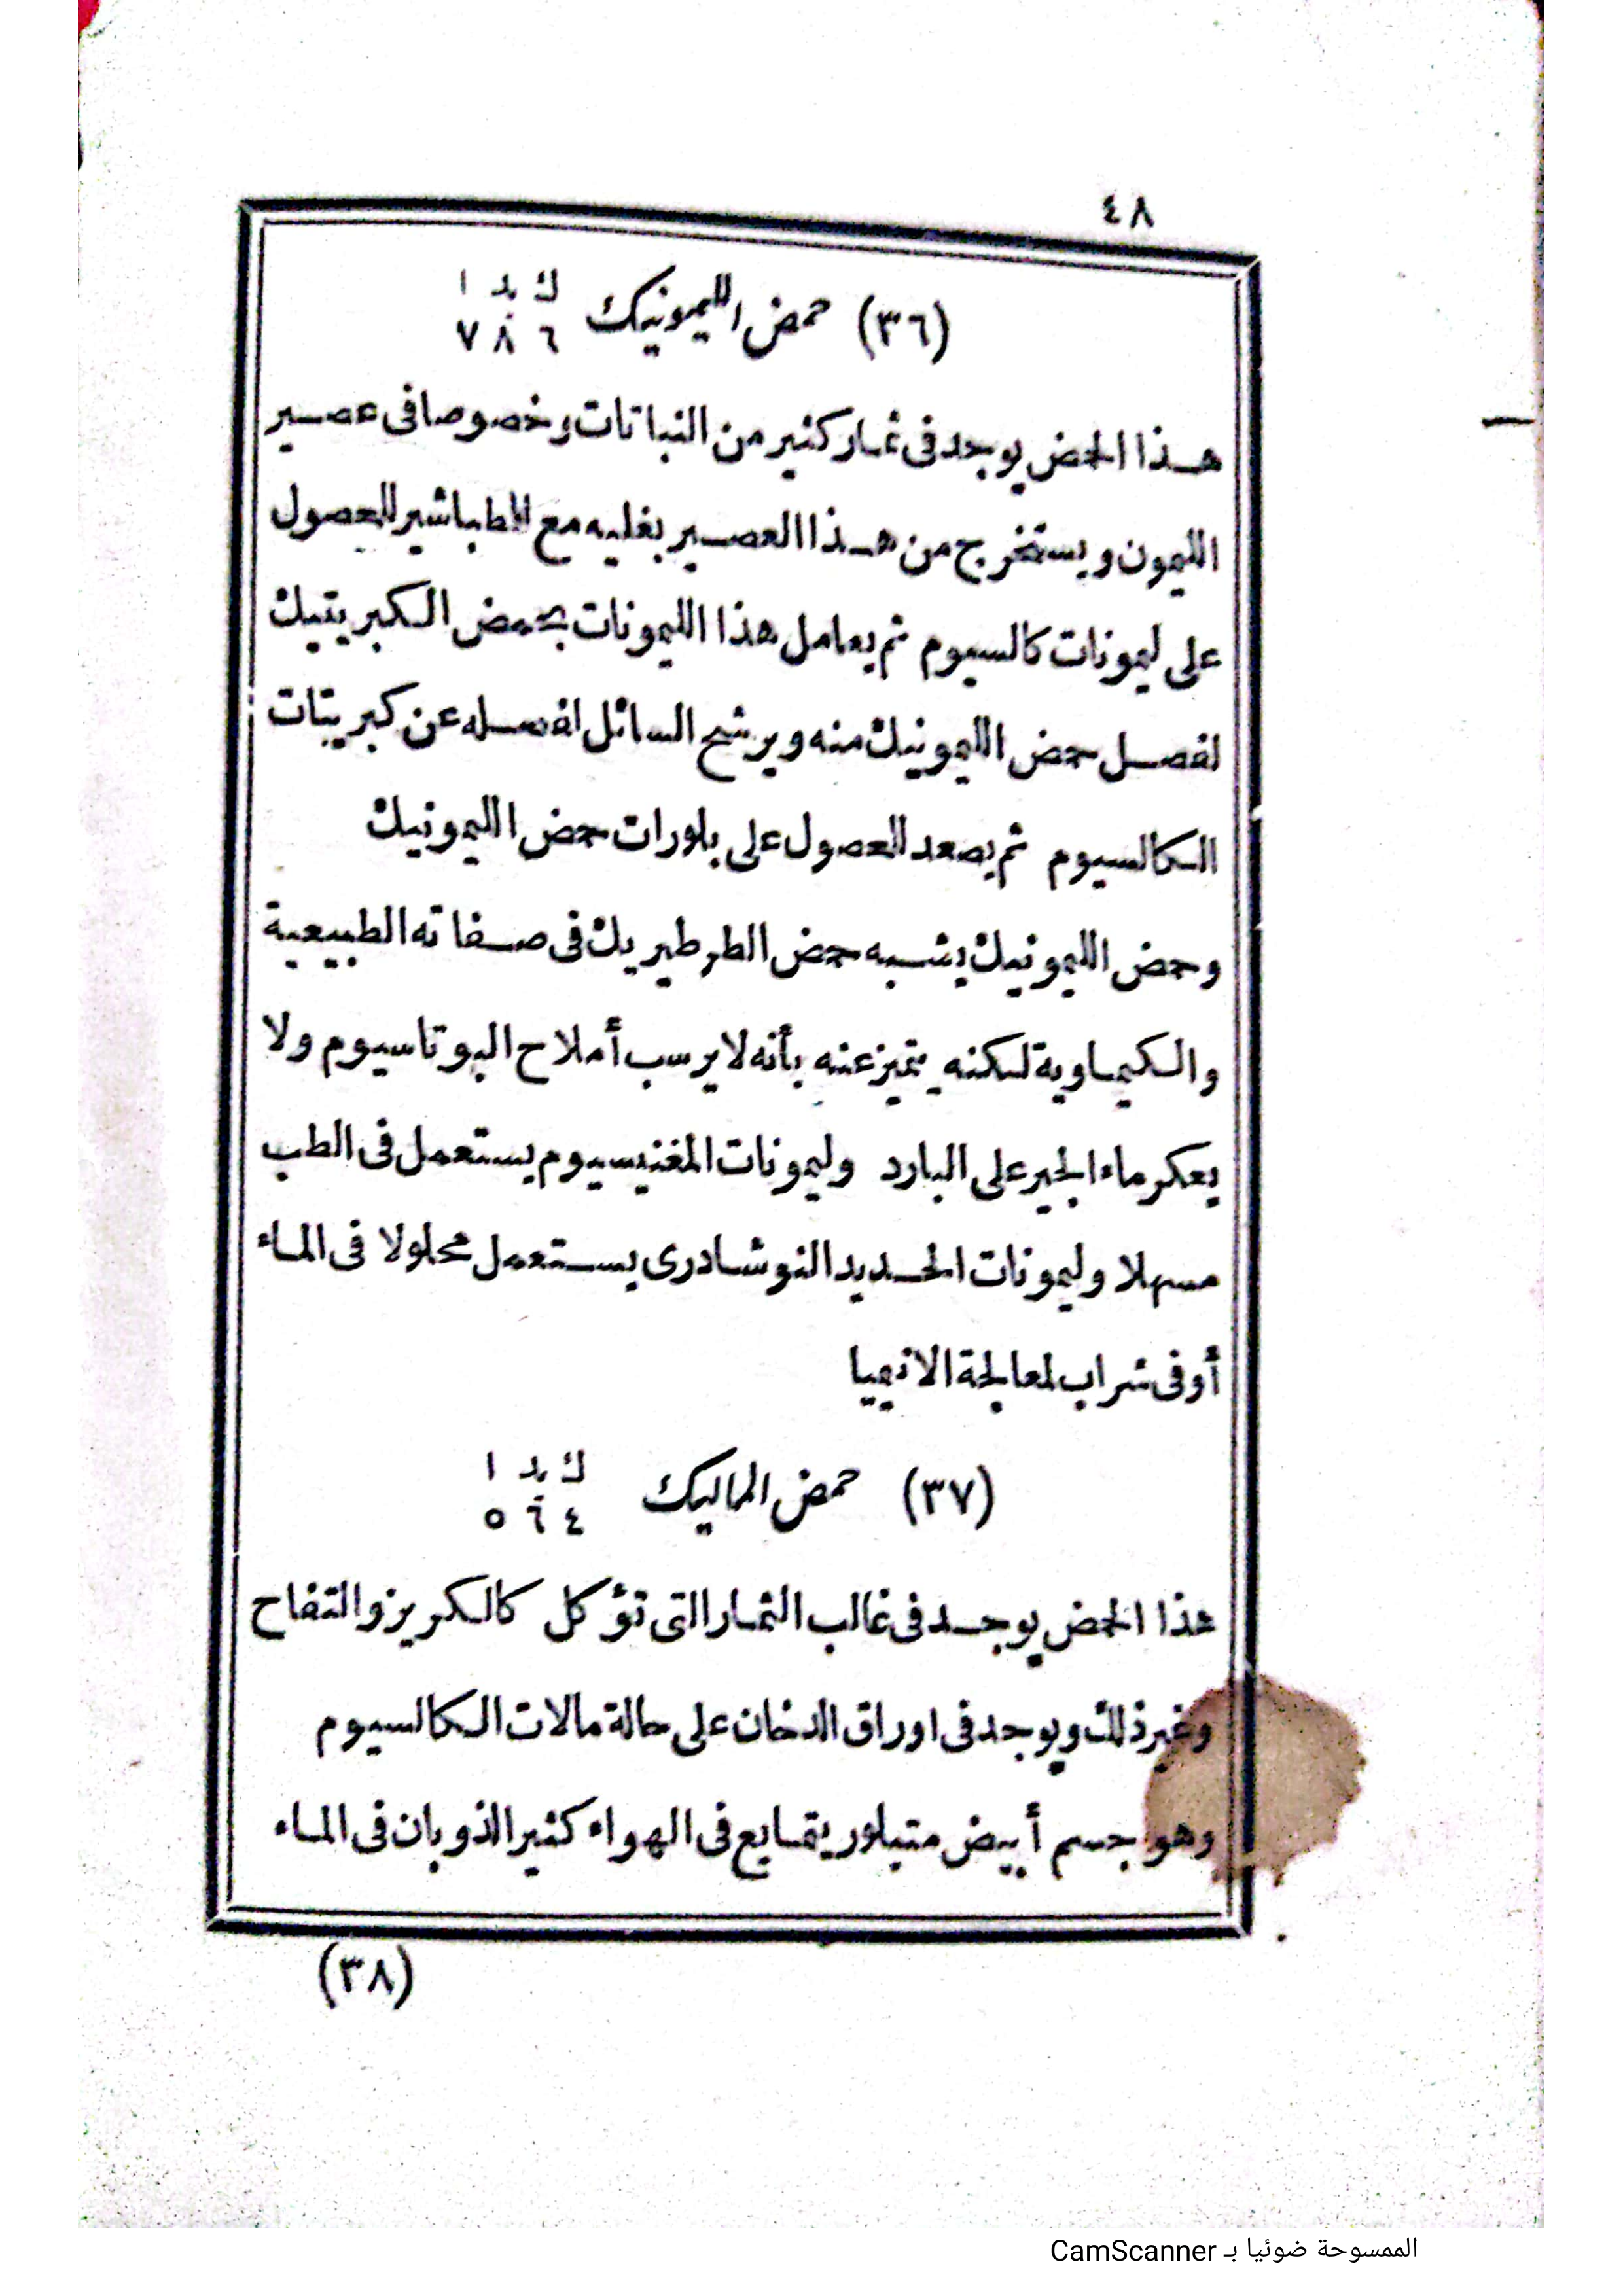 ٤٨
(٣٦) حمض الليمونيك ك يد ا
٦ ٨ ٧
هذا الحمض يوجد فى ثمار كثير من النباتات وخصوصا فى عصير
الليمون ويستخرج من هذا العصير بغليه مع الطباشير للحصول
على ليمونات كالسيوم ثم يعامل هذا الليمونات بحمض الكبريتيك
لفصل حمض الليمونيك منه ويرشح السائل لفصله عن كبريتات
الكالسيوم ثم يصعد للحصول على بلورات حمض الليمونيك
وحمض الليمونيك يشبه حمض الطرطيريك فى صفاته الطبيعية
والكيماوية لكنه يتميز عنه بأنه لا يرسب أملاح البوتاسيوم ولا
يعكر ماء الجير على البارد وليمونات المغنيسيوم يستعمل فى الطب
مسهلا وليمونات الحديد النوشادرى يستعمل محلولا فى الماء
أو فى شراب لمعالجة الانيميا
(٣٧) حمض الماليك ك يد ا
٤ ٦ ٥
هذا الحمض يوجد فى غالب الثمار التى تؤكل كالكريز والتفاح
وغير ذلك ويوجد فى اوراق الدخان على حالة مالات الكالسيوم
وهو جسم أبيض متبلور يتمايع فى الهواء كثير الذوبان فى الماء
(٣٨)
الممسوحة ضوئيا بـ CamScanner